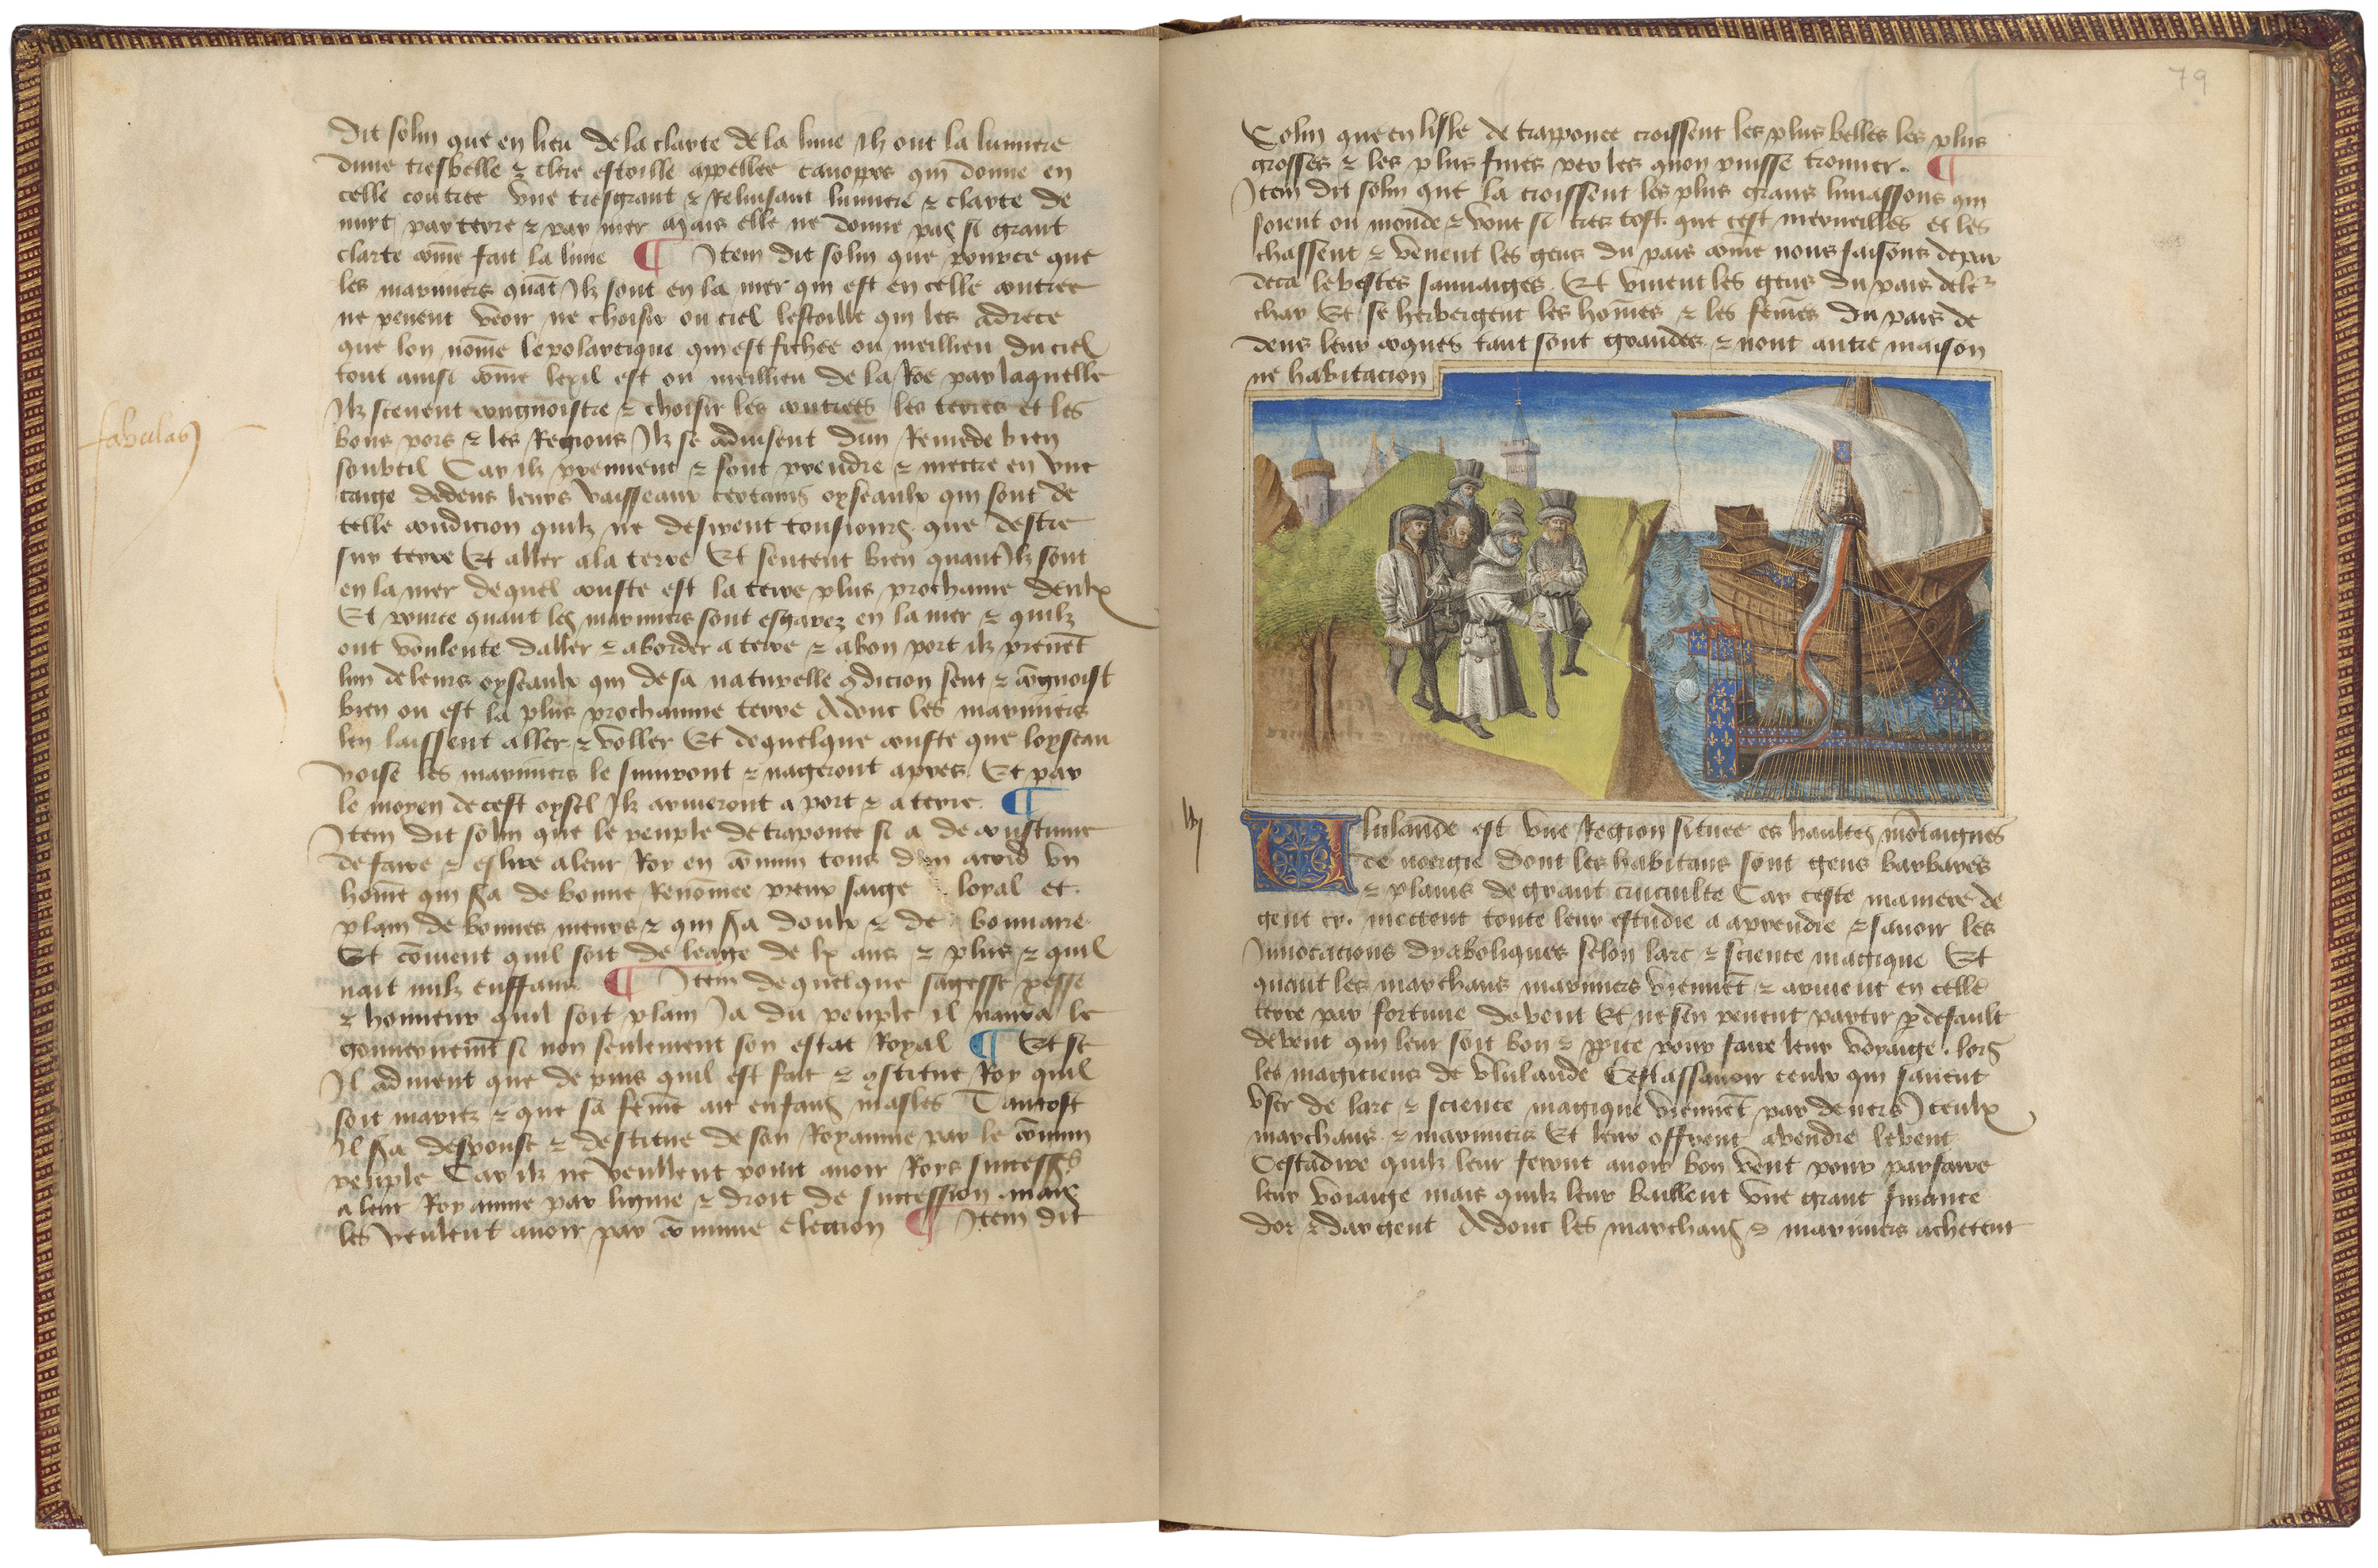 dit solin que en lieu de la clarte de la lune Ilz ont la lumiere
dune tresbelle & clere estoille appellee canopes qui donne en
celle contree vne tresgrant & Reluisant lumiere & clarte de
nuyt par terre & par mer Mais elle ne donne pas si grant
clarte cōme fait la lune ¶ Item dit solin que pource que
les mariniers quāt Ilz sont en la mer qui est en celle contree
ne peuent veoir ne choisir ou ciel lestoille qui les adrece
que lon nōme le polartique qui est fichee ou meillieu du ciel
tout ainsi cōme lexil est ou meillieu de la Roe par laquelle
Ilz sceuent congnoistre & choisir les contrees les terres et les
fabulas
bons pors & les Regions Ilz se aduisent dun Remede bien
soubtil Car ilz prennent & font prendre & mettre en vne
caige dedens leurs vaisseaux certains oyseaulx qui sont de
telle condicion quilz ne desirent tousiours que destre
sur terre Et aller a la terre Et sentent bien quant Ilz sont
en la mer de quel couste est la terre plus prochaine deulx
Et pource quant les mariniers sont esgarez en la mer & quilz
ont voulente daller & aborder a terre & a bon port ilz prenēt
lun de leurs oyseaulx qui de sa naturelle ꝯdicion sent & cōgnoist
bien ou est la plus prochaine terre Adonc les mariniers
len laissent aller & voller Et de quelque couste que loyseau
voise les mariniers le suiuront & nageront apres Et par
le moyen de cest oysel Ilz arriueront a port & a terre ¶
Item dit solin que le peuple de traponee si a de coustume
de faire & eslire a leur Roy en cōmun tous dun acord vn
homē qui sera de bonne Renōmee preux saige loyal et
plain de bonnes meurs & qui sera doulx & de bonnaire
Et cōuient quil soit de leage de lx ans & plus & quil
nait nulz enffans ¶ Item de quelque sagesse
& honneur quil soit plain Ja du peuple il naura le
gouuernemēt si non seulement son estat Royal ¶ Et se
Il aduient que de puis quil est fait & ꝯstitue Roy quil
soit mariez & que sa fēme ait enfans masles Tantost
Il sera despouse & destitue de son Royaume par le cōmun
peuple Car ilz ne veullent point auoir Roys
a leur Royaume par ligne & droit de succession mais
les veulent auoir par cōmune election ¶ Item dit
79
Solin que en lisle de trapponee croissent les plus belles les plus
grosses & les plus fines perles quon puisse trouuer ¶
Item dit solin que la croissent les plus grans limassons qui
soient ou monde & vont si tres tost que cest merueilles et les
chassent & venent les gens du pais cōme nous faisons depar
deca les bestes sauuaiges Et viuent les gens du pais de leʳ
char Et se herbergent les homēs & les fēmes du pais de
dens leur coques tant sont grandes & nont autre maison
ne habitacion
Ululande est vne Region situee es haultes mōtaignes
de noergie dont les habitans sont gens barbares
& plains de grant Car ceste maniere de
gent cy mettent toute leur estudie a aprendre & sauoir les
Inuocacions dyaboliques selon lart & science magique Et
quant les marchans mariniers viennēt & arriuent en celle
terre par fortune de vent Et ne sen peuent partir p default
de vent qui leur soit bon & ppice pour faire leur voyaige lors
les magiciens de vlulande Cest assauoir ceulx qui sauent
vser de lart & science magique viennēt par deuers Iceulx
marchans & mariniers Et leur offrent a vendre le vent
Cestadire quilz leur feront auoir bon vent pour parfaire
leur voiaige mais quilz leur baillent vne grant finance
dor & dargent Adonc les marchans & mariniers achetent